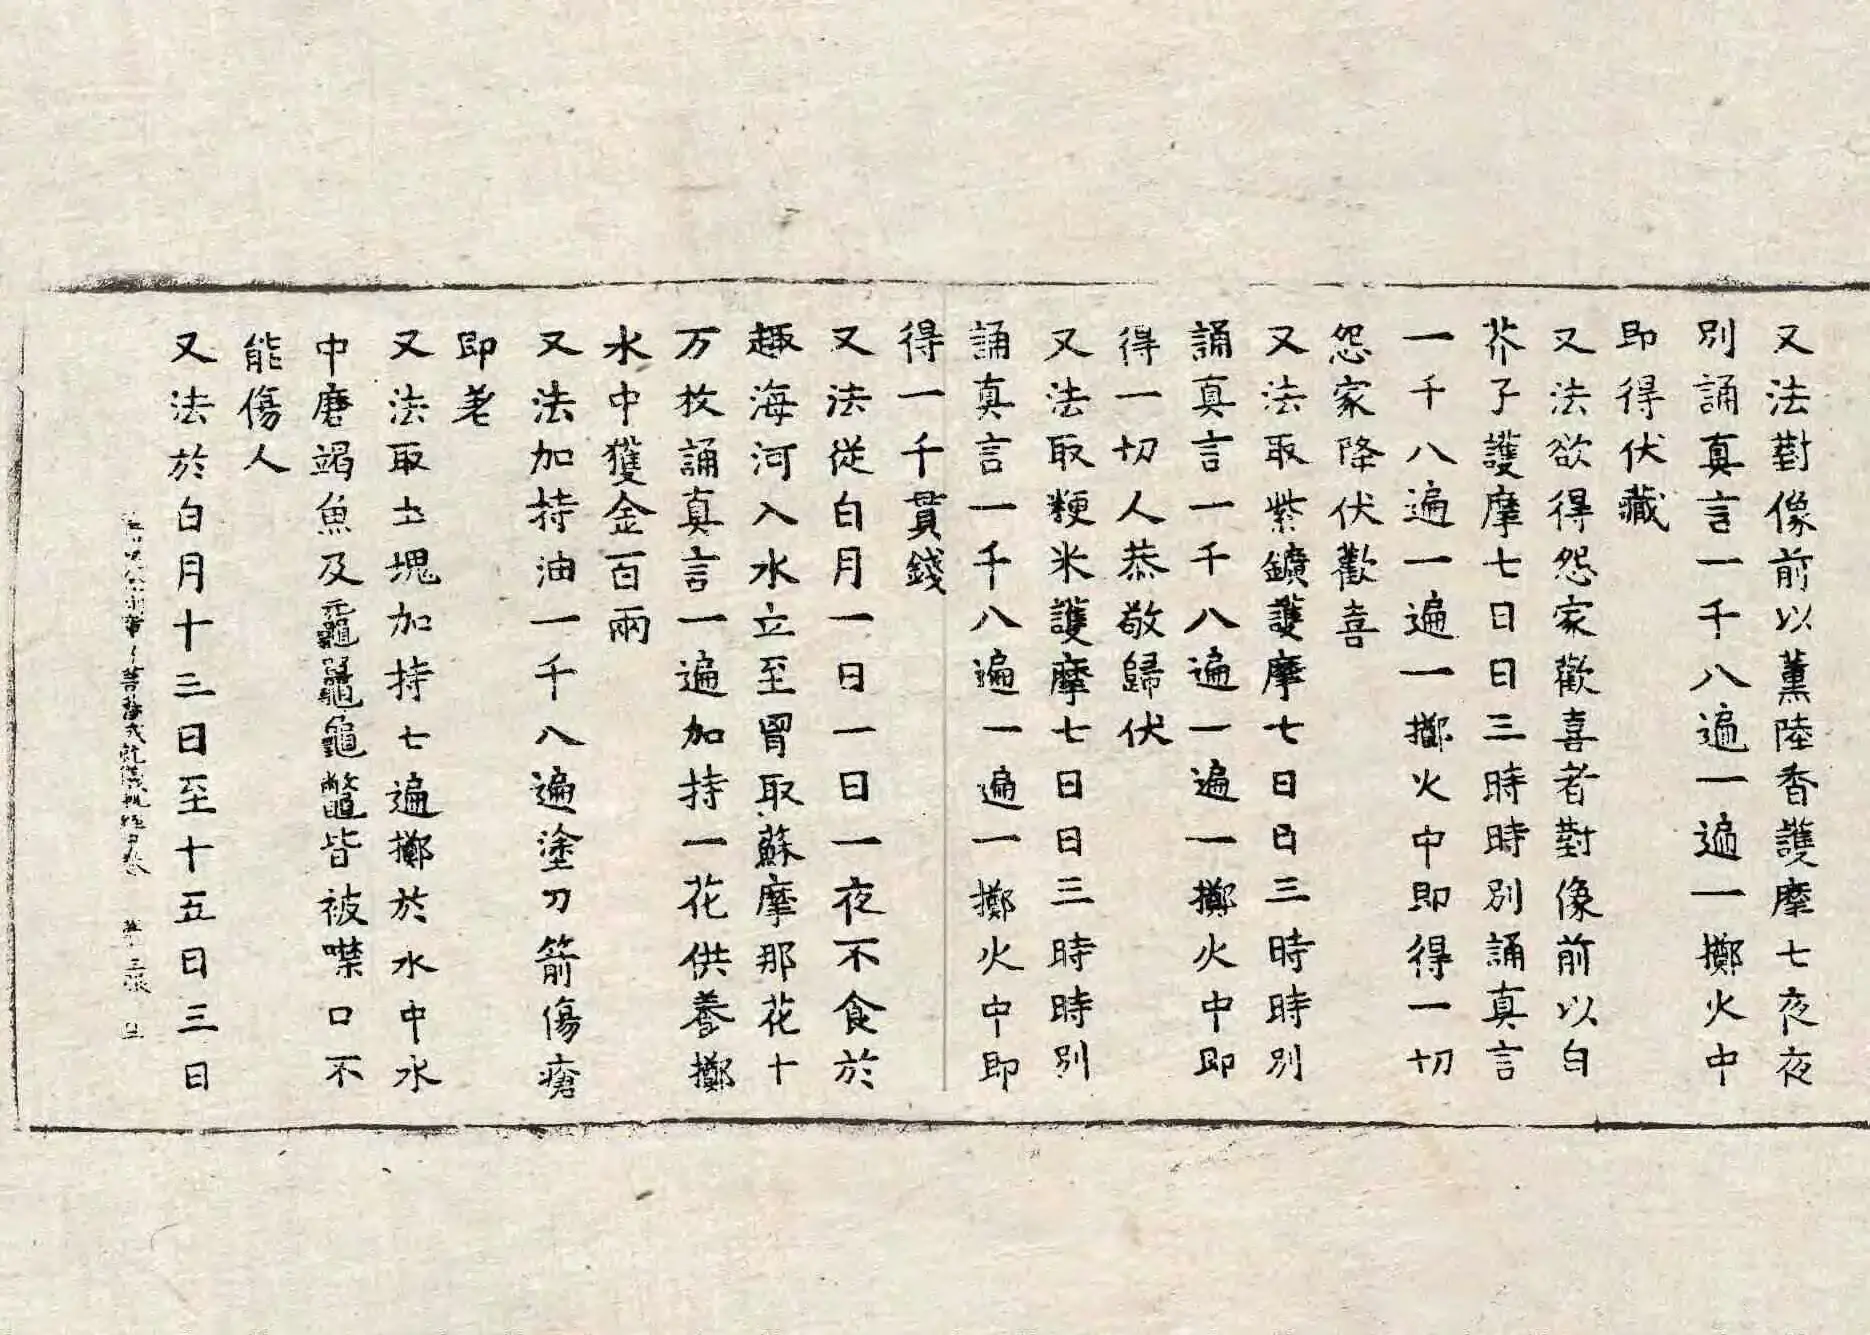 又法對像前以薰陸香護摩七夜夜
別誦真言一千八遍一遍一擲火中
即得伏藏
又法欲得怨家歡喜者對像前以白
芥子護摩七日日三時時別誦真言
一千八遍一遍一擲火中即得一切
怨家降伏歡喜
又法取紫鑛護摩七日日三時時別
誦真言一千八遍一遍一擲火中即
得一切人恭敬歸伏
又法取粳米護摩七日日三時時別
誦真言一千八遍一遍一擲火中即
得一千貫錢
又法從白月一日一日一夜不食於
趣海河入水立至胷取蘇摩那花十
万枚誦真言一遍加持一花供養擲
水中獲金百兩
又法加持油一千八遍塗刀箭傷瘡
即差
又法取土塊加持七遍擲於水中水
中磨竭魚及黿鼉龜鼈皆被噤口不
能傷人
菩薩成就儀軌經 卷 張
又法於白月十三日至十五日三日